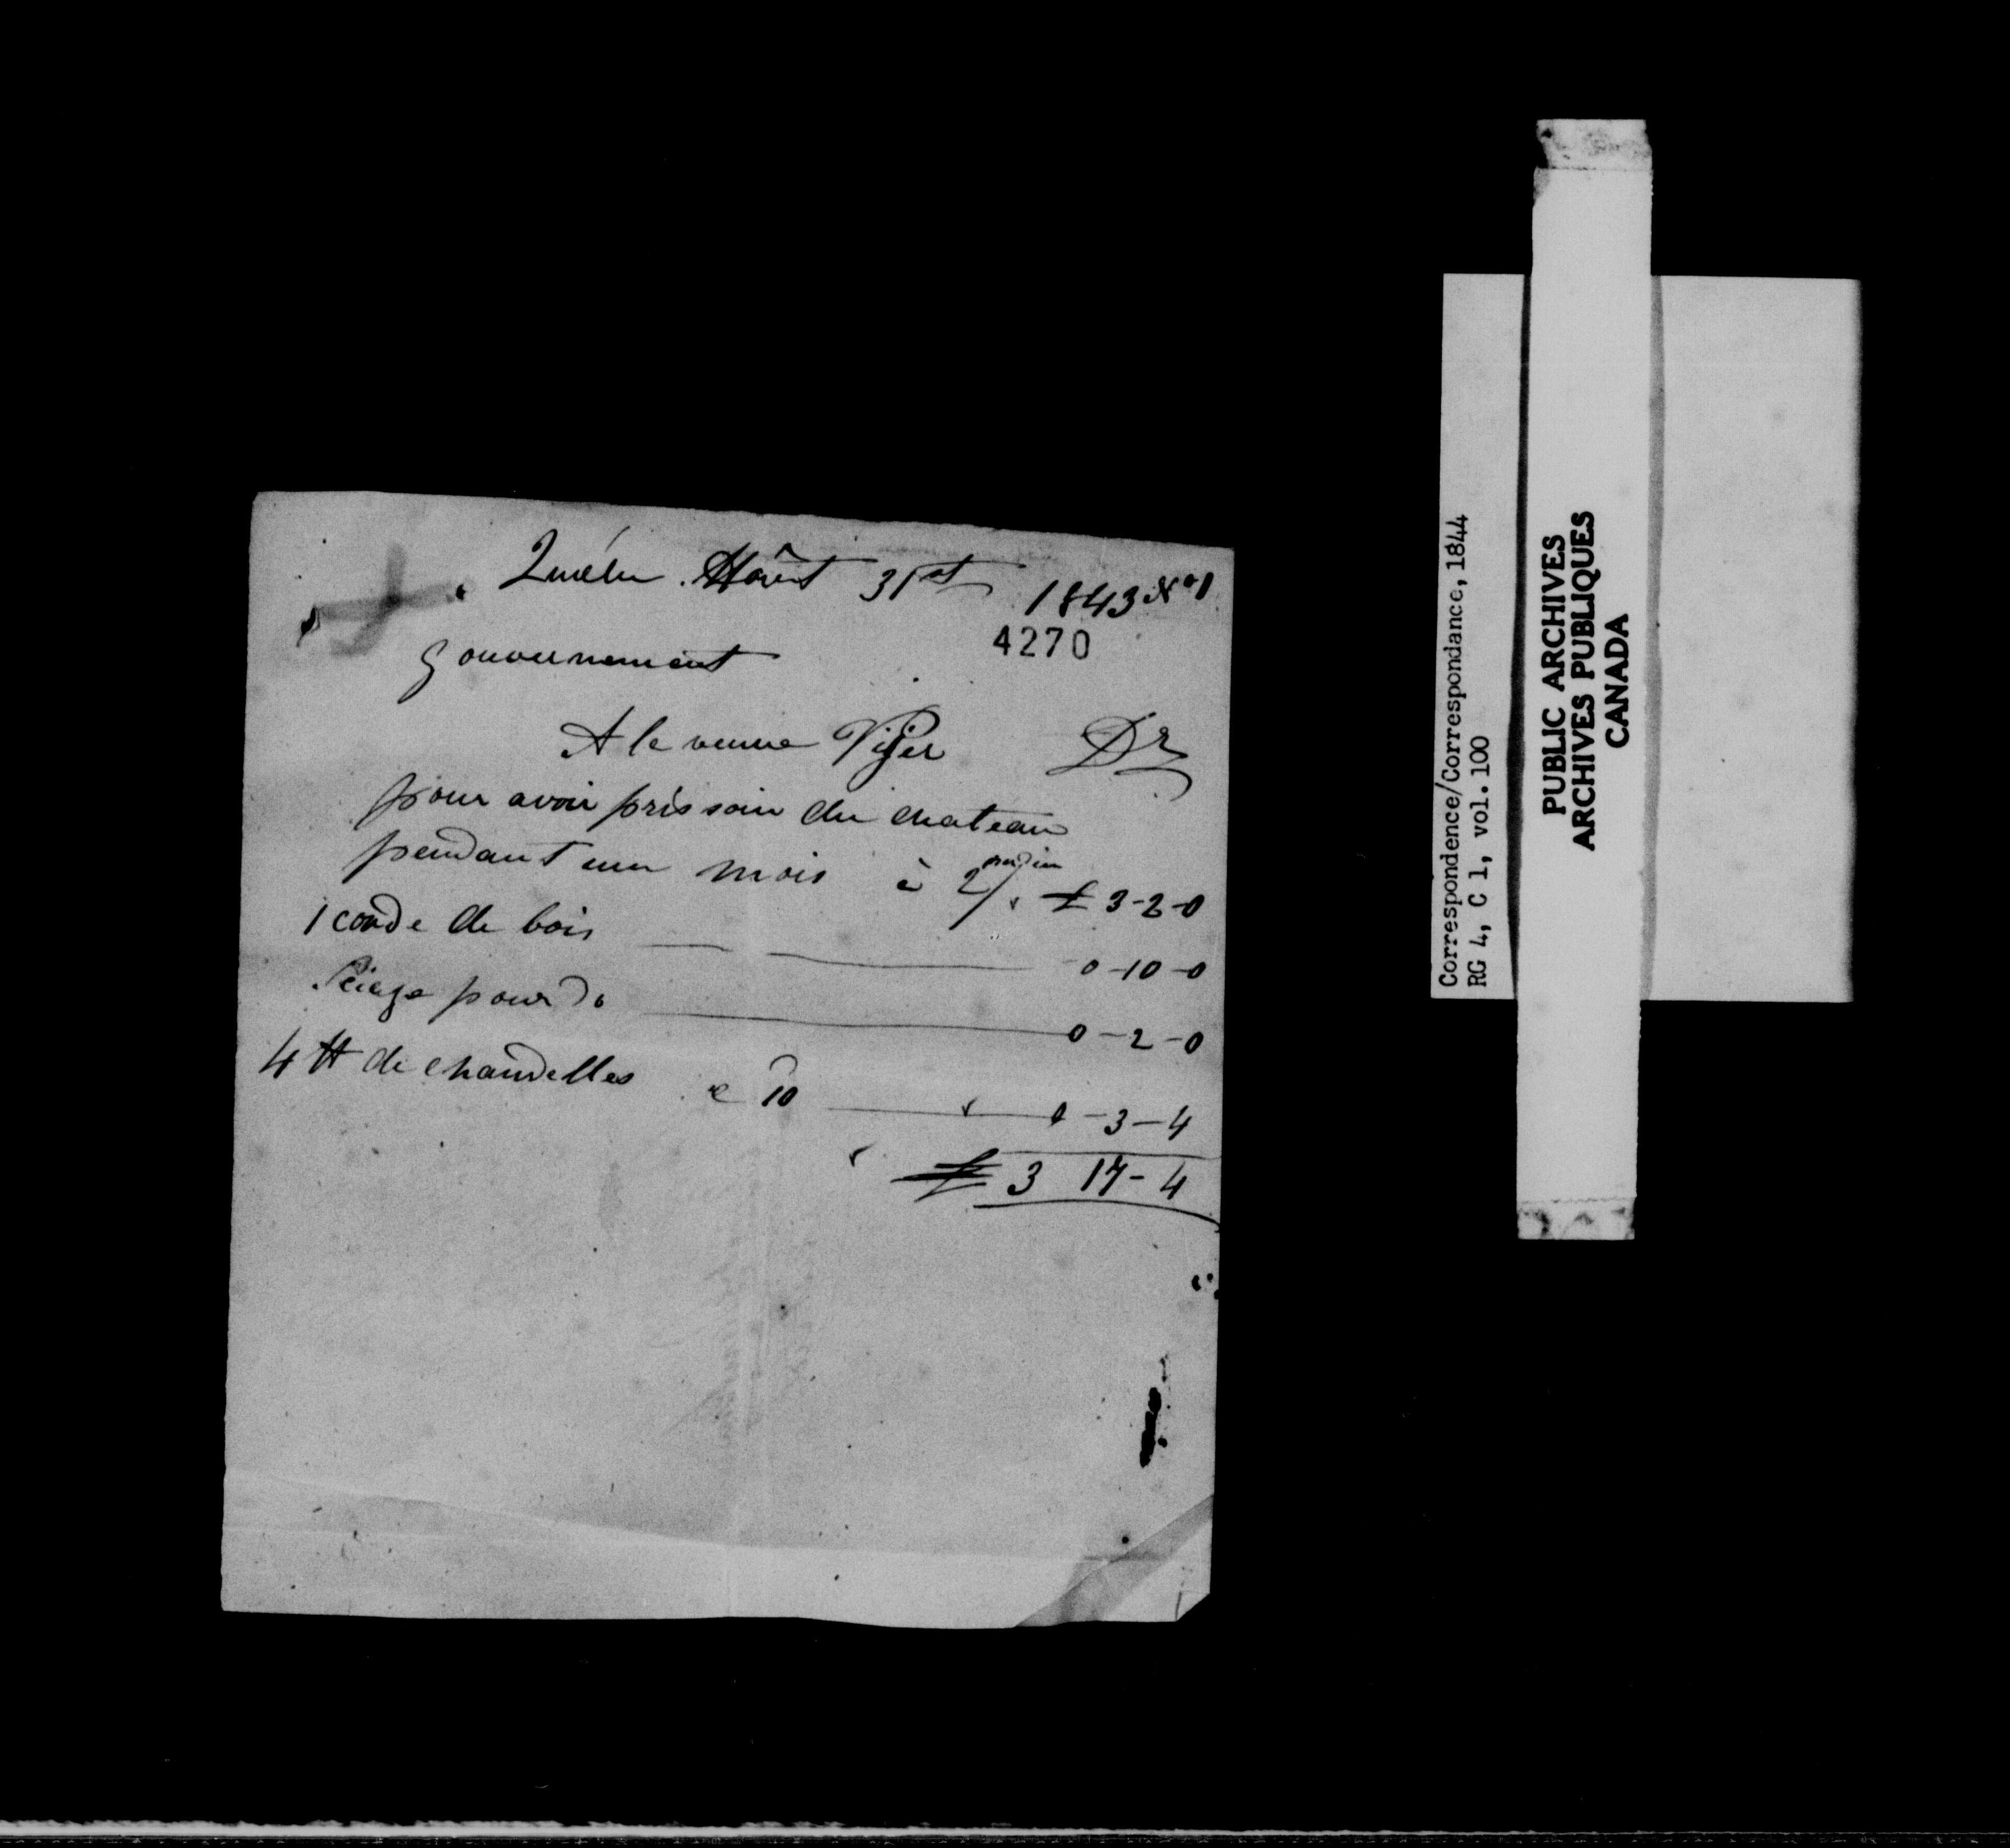 Québec Août 31st 1843 No 1
4270
Gouvernement
A la veuve Viger Dr
pour avoir pris soin du chateau
pendant un mois à 2/. £ 3-2-0
1 corde de bois 0-10-0
Sciage pour do 0-2-0
4 ℔ de chandelles 10 0-3-4
£ 3 17-4
Correspondence/Correspondance, 1844
RG 4, C 1, vol. 100
PUBLIC ARCHIVES
ARCHIVES PUBLIQUES
CANADA